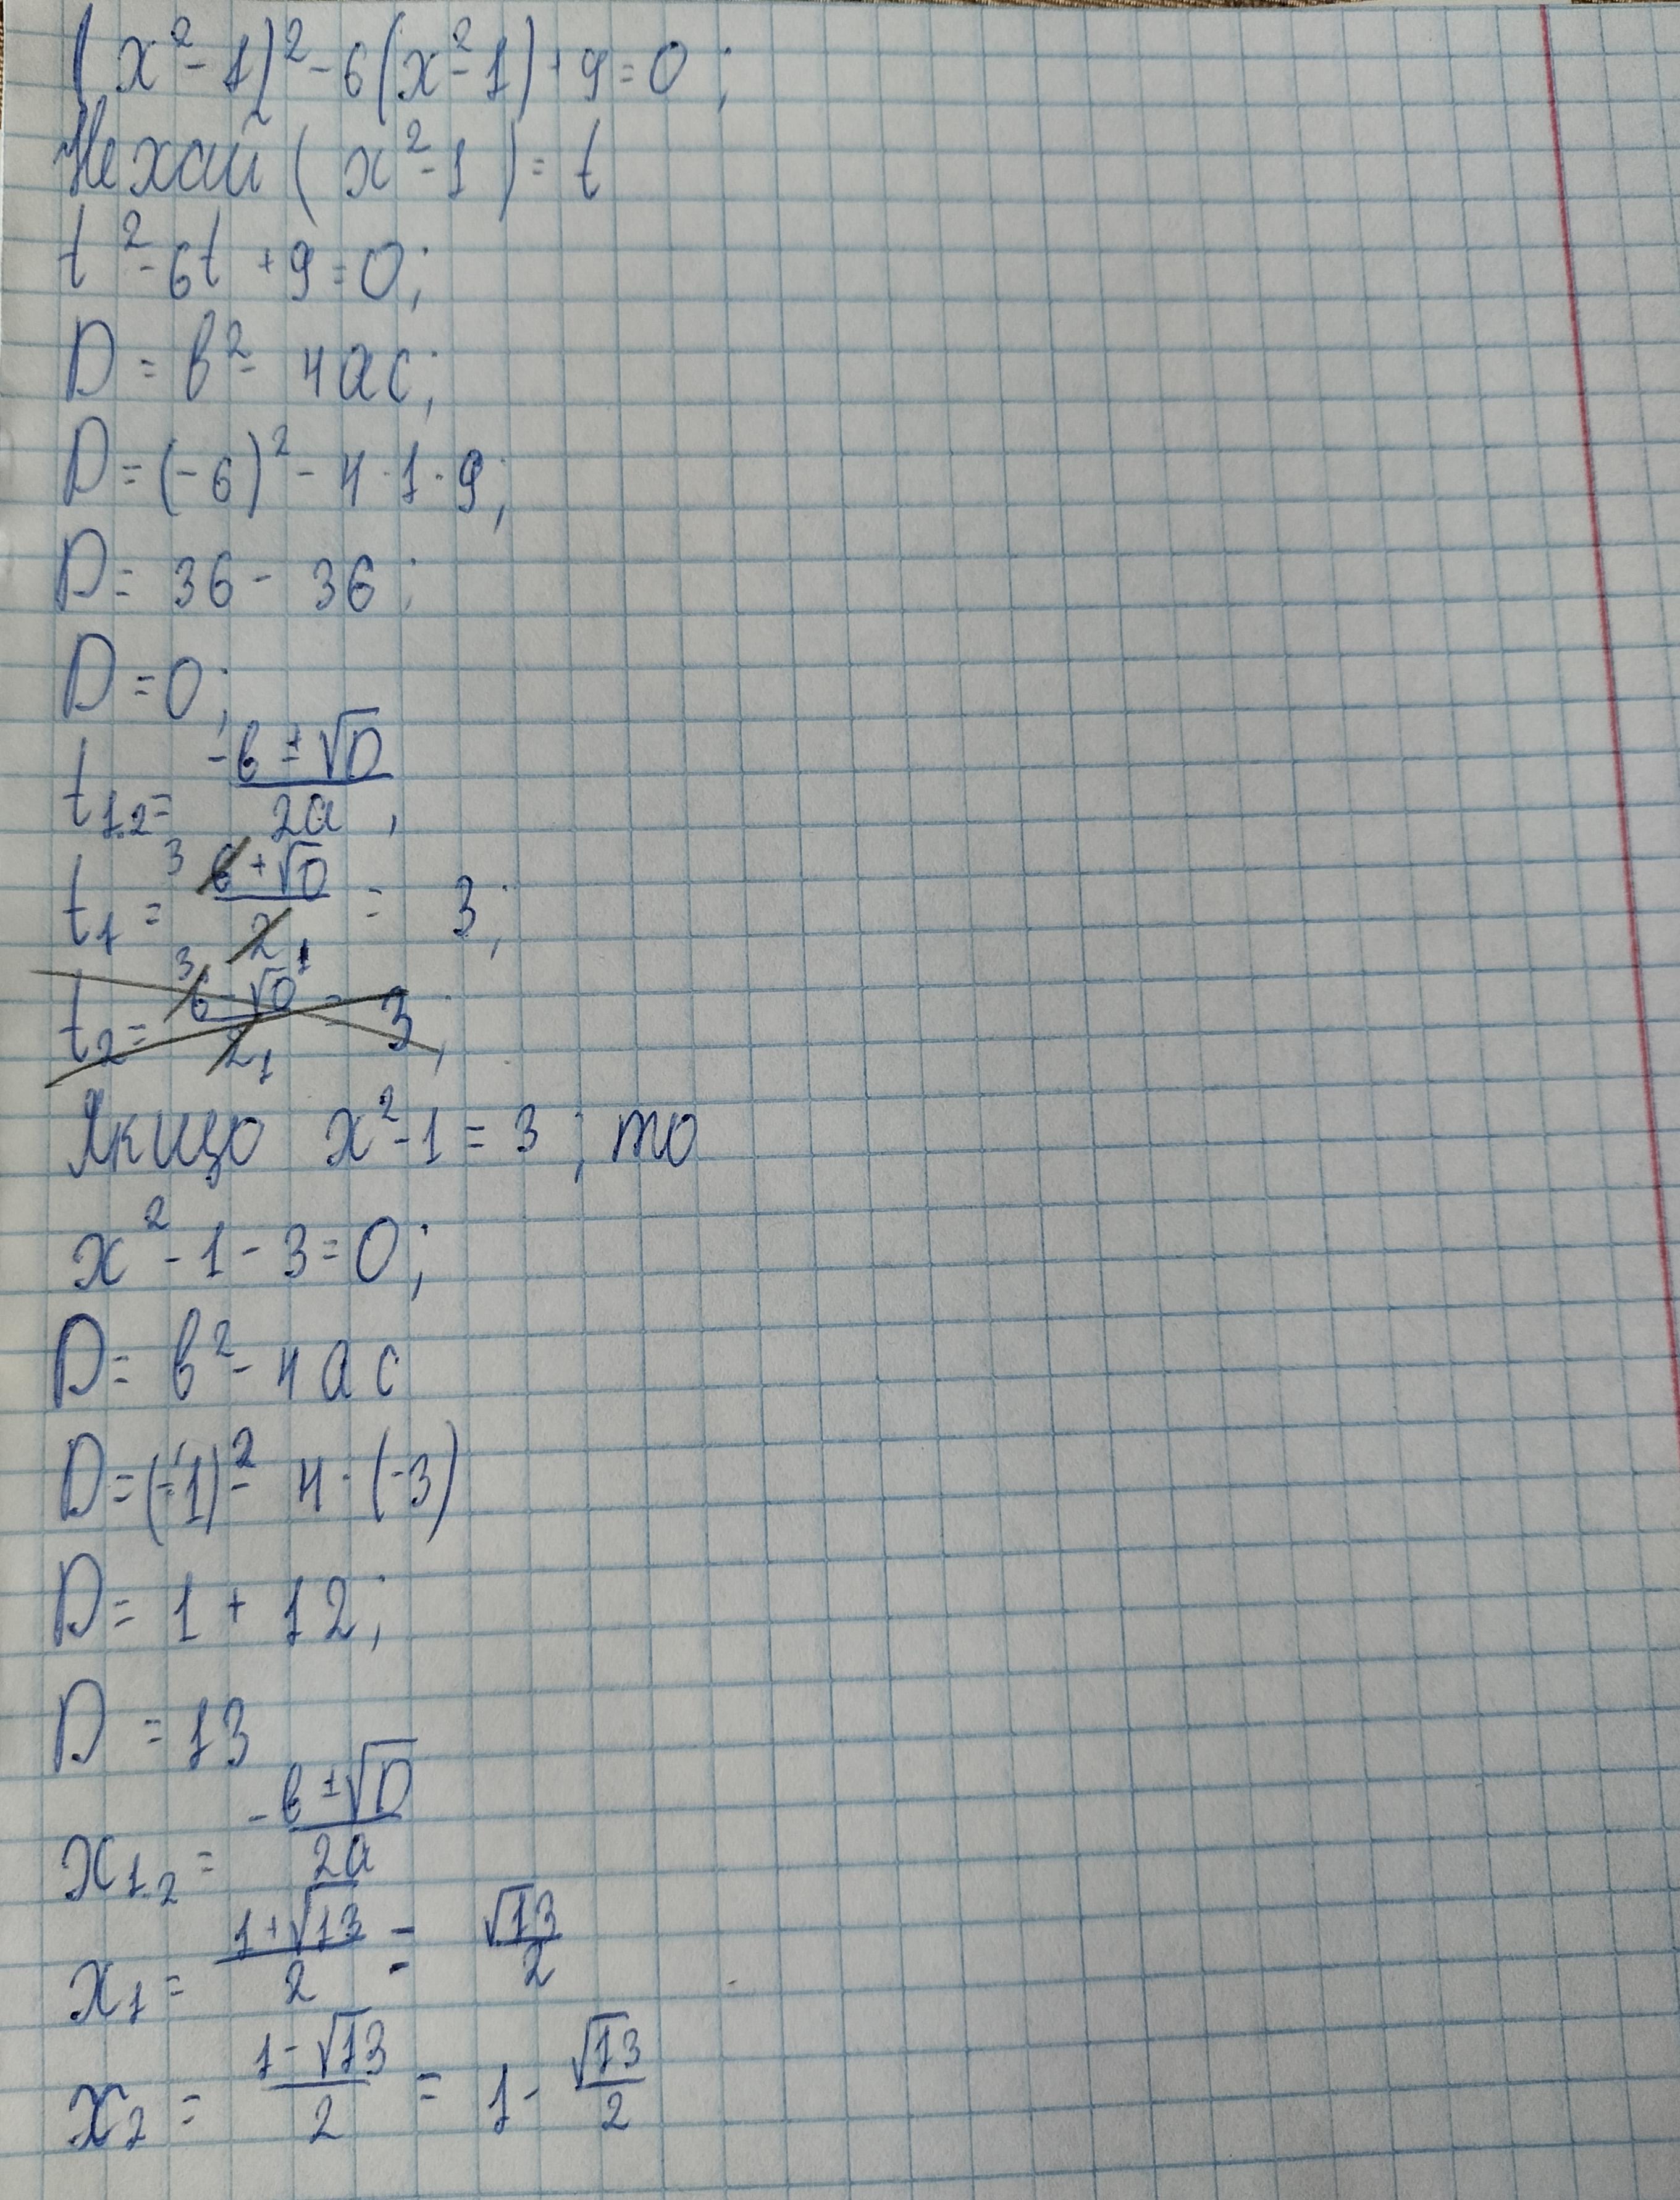 (x²-1)²-6(x²-1)+9=0;
Нехай (x²-1)=t
t²-6t+9=0;
D=в²-4ac;
D=(-6)²-4·1·9;
D=36-36;
D=0;
t₁.₂=(-в±√D)/2a,
t₁=(6+√0)/2=3;
3
1
t₂=(6-√0)/2=3;
3
1
Якщо x²-1=3; то
x²-1-3=0;
D=в²-4ac
D=(-1)²-4·(-3)
D=1+12;
D=13
x₁.₂=(-в±√D)/2a
x₁=(1+√13)/2=√13/2
x₂=(1-√13)/2=1-√13/2